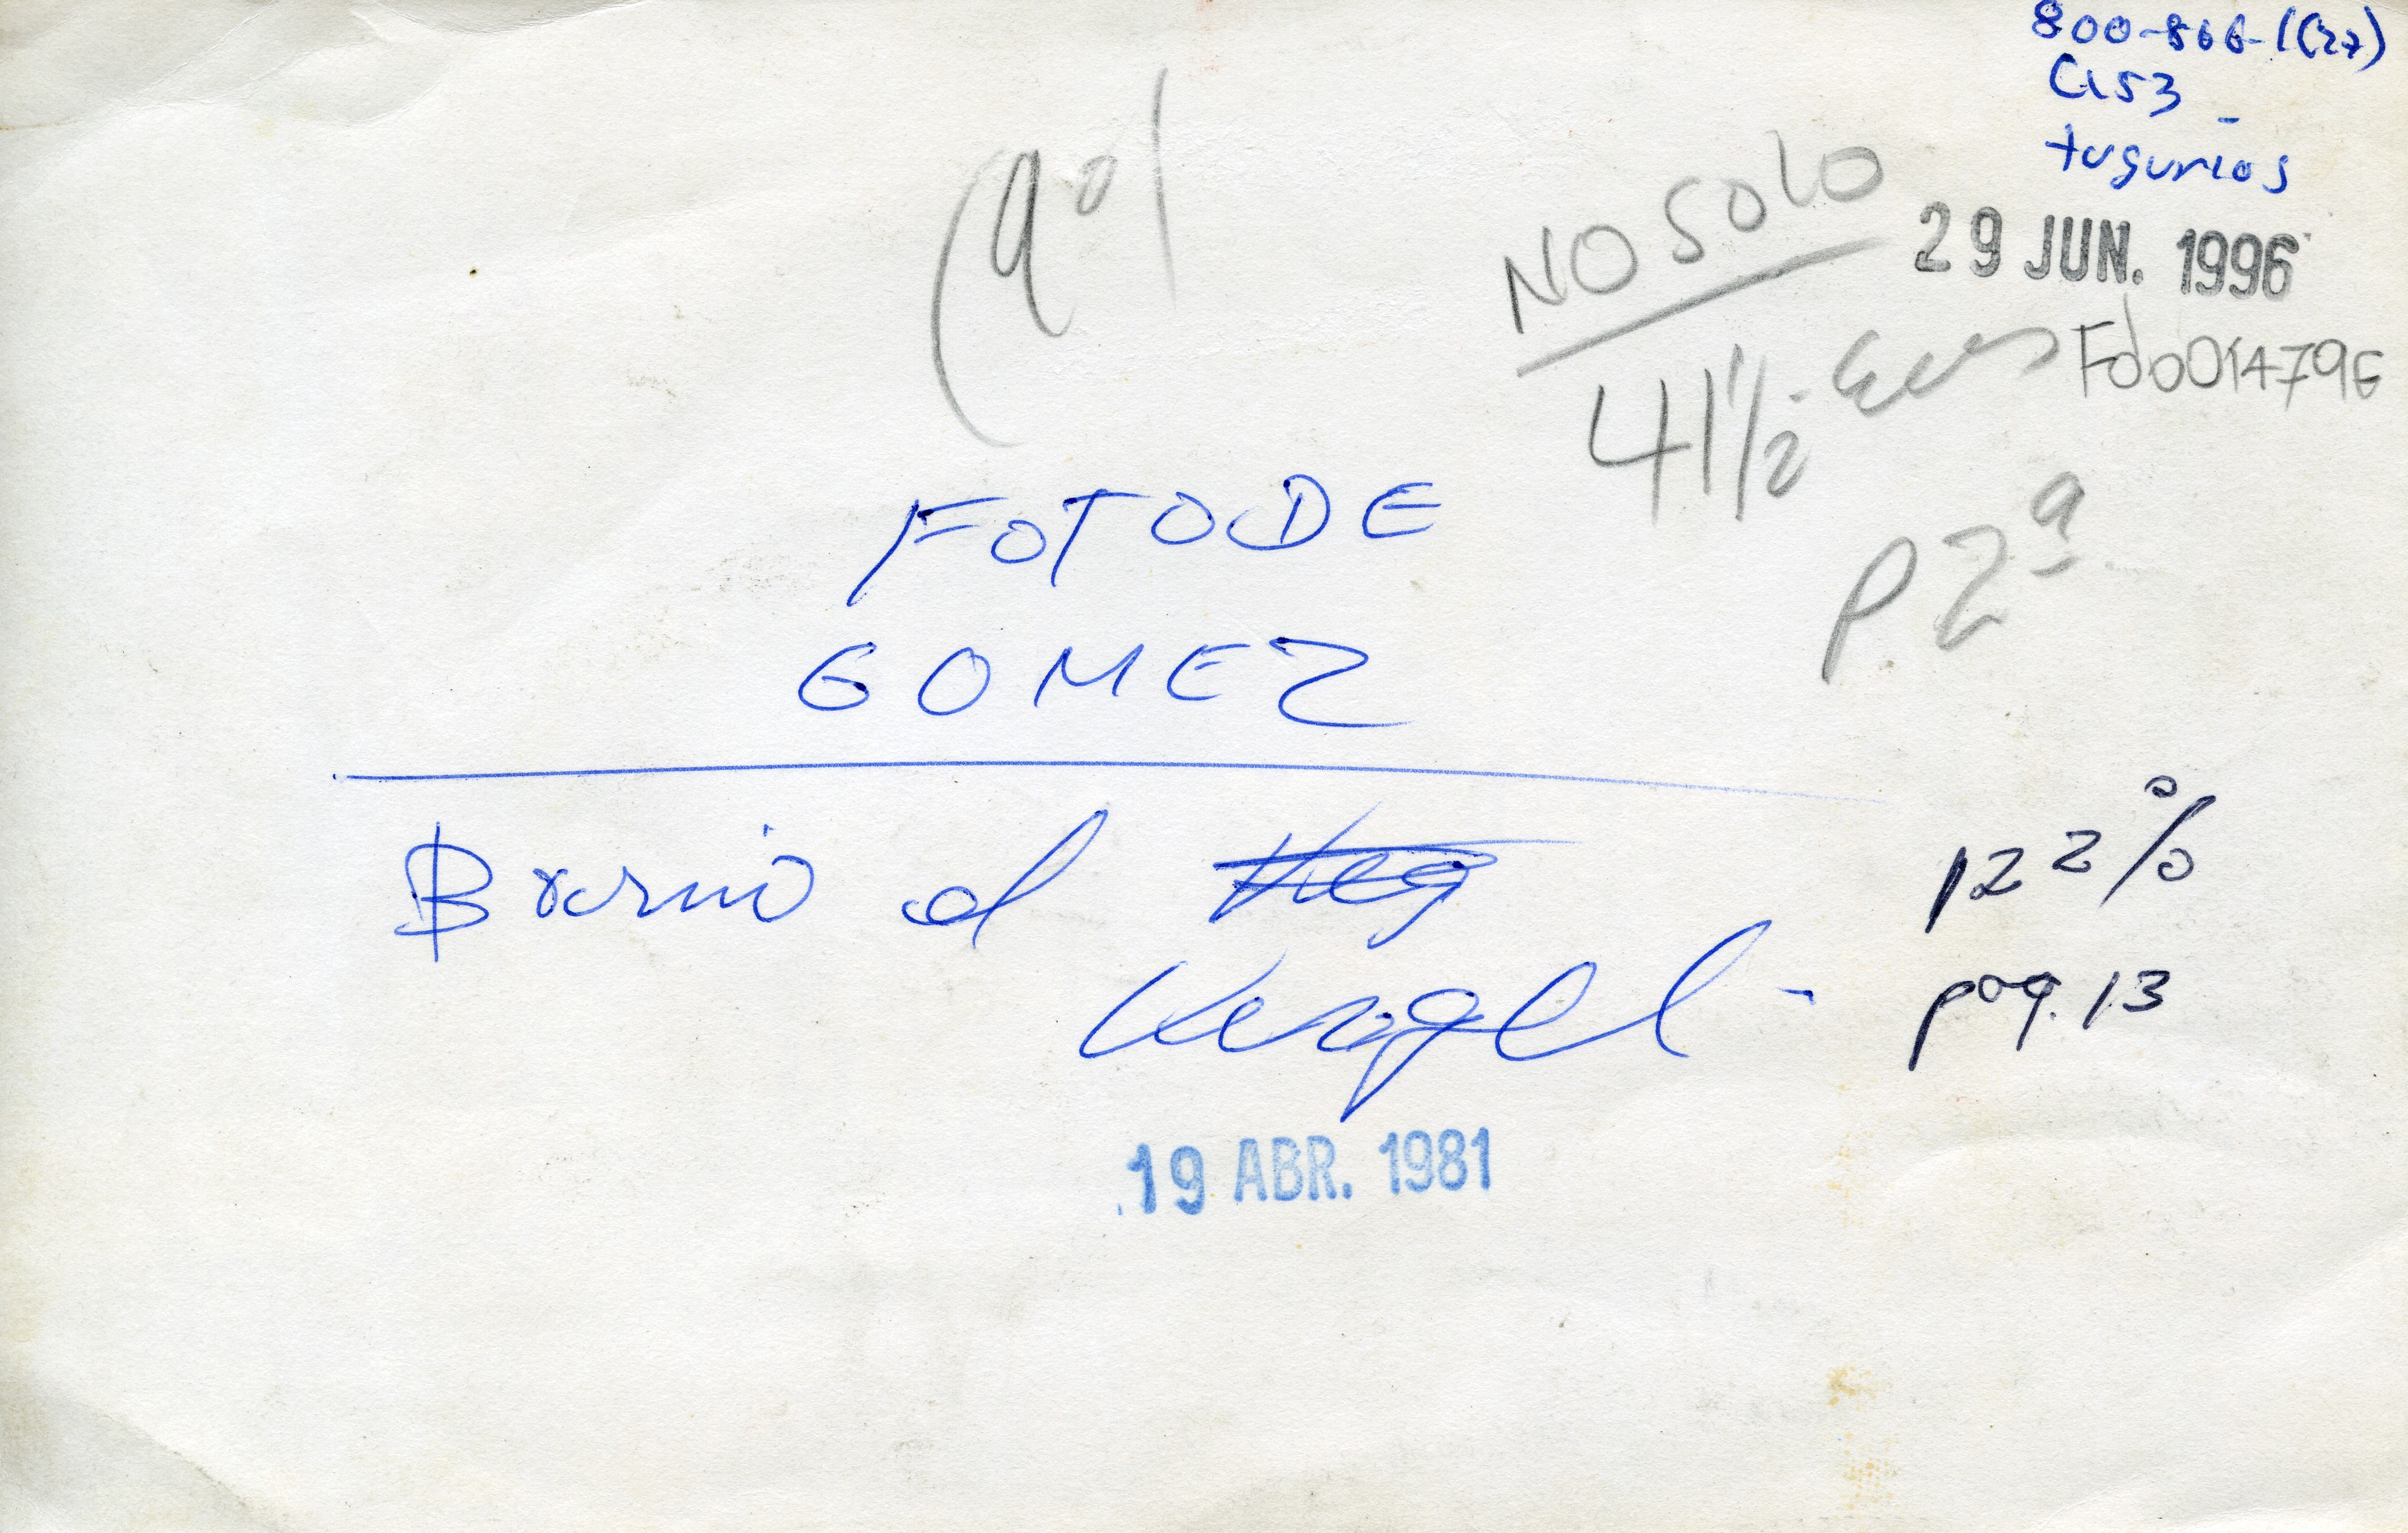 800-866-1(27)
C153
tugurios
NO SOLO
29 JUN. 1996
41 1/2
Fdo0014796
P 2ª
FOTO DE
GOMEZ
Barrio el
Vergel -
pag. 13
19 ABR. 1981